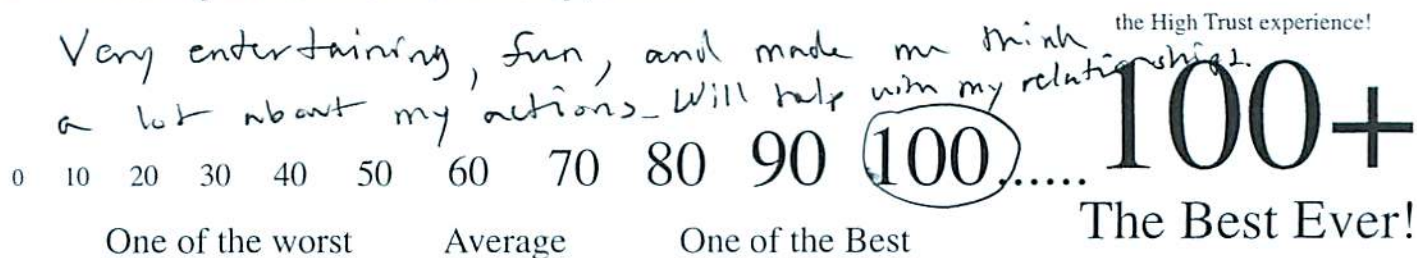 the High Trust experience!
Very entertaining, fun, and made me think
a lot about my actions. Will help with my relationships.
0 10 20 30 40 50 60 70 80 90 100...... 100+
One of the worst Average One of the Best The Best Ever!